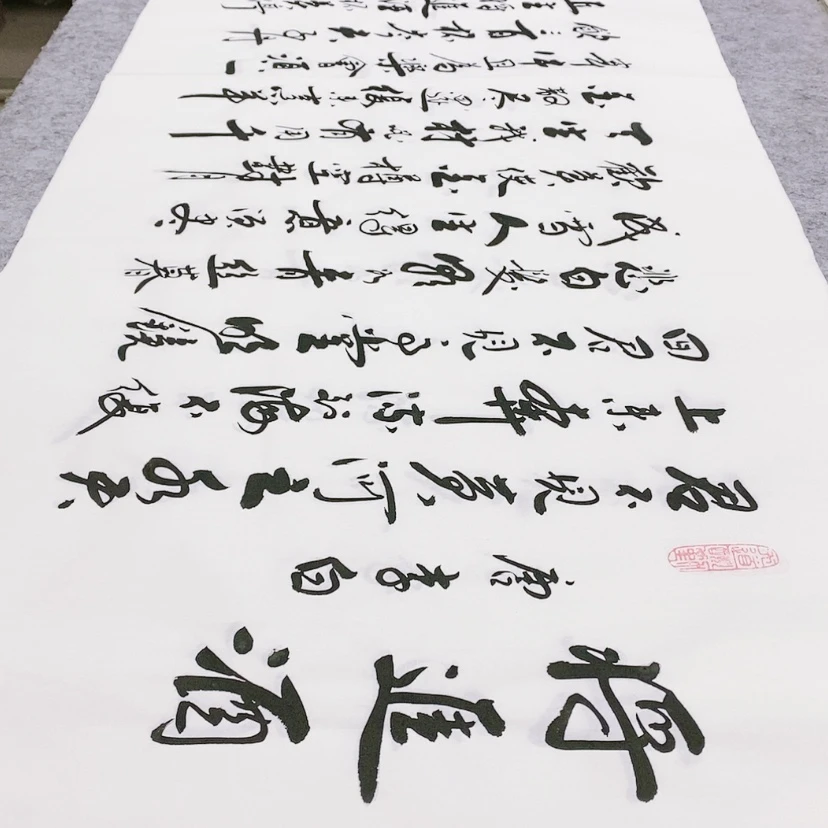 将進酒
唐李白
君不見黄河之水天
上来奔流到海不復
回君不見高堂明鏡
悲白髮朝如青絲暮
成雪人生得意須尽
歡莫使金樽空對月
天生我材必有用千
金散尽還復来烹羊
宰牛且為樂會須一
飲三百杯岑夫子丹
丘生将進酒杯莫停